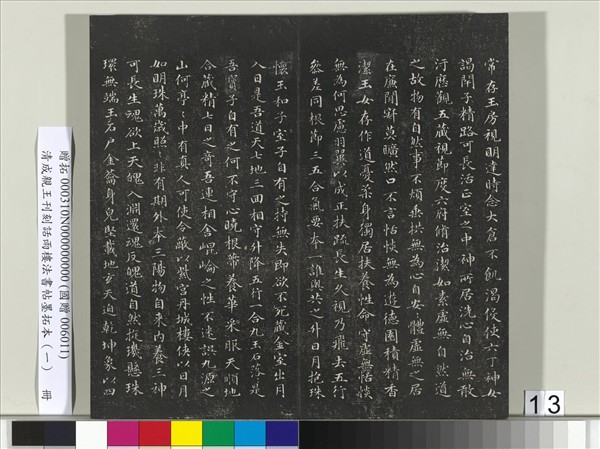 常存玉房視明達時念大倉不飢渴役使六丁神女
謁閉子精路可長活正室之中神所居洗心自治無敢
汙歷觀五藏視節度六府脩治潔如素虛無自然道
之故物有自然事不煩垂拱無為心自安體虛無之居
在廉間寂莫曠然口不言恬惔無為遊德園積精香
潔玉女存作道憂柔身獨居扶養性命守虛無恬惔
無為何思慮羽翼以成正扶疏長生久視乃飛去五行
參差同根節三五合氣要本一誰與共之升日月抱珠
懷玉和子室子自有之持無失即欲不死藏金室出月
入日是吾道天七地三回相守升降五行一合九玉石落〻是
吾寶子自有之何不守心曉根蔕養華采服天順地
合藏精七日之奇吾連相舍崐崘之性不迷誤九源之
山何亭〻中有真人可使令蔽以紫宮丹城樓俠以日月
如明珠萬歲照〻非有期外本三陽物自來內養三神
可長生魂欲上天魄入淵還魂反魄道自然旋璣懸珠
環無端玉石戶金籥身兒堅載地玄天迴乾坤象以四
贈拓000310N000000000(國贈006011)
清成親王刊刻詒雨樓法書帖墨拓本(一) 冊
13